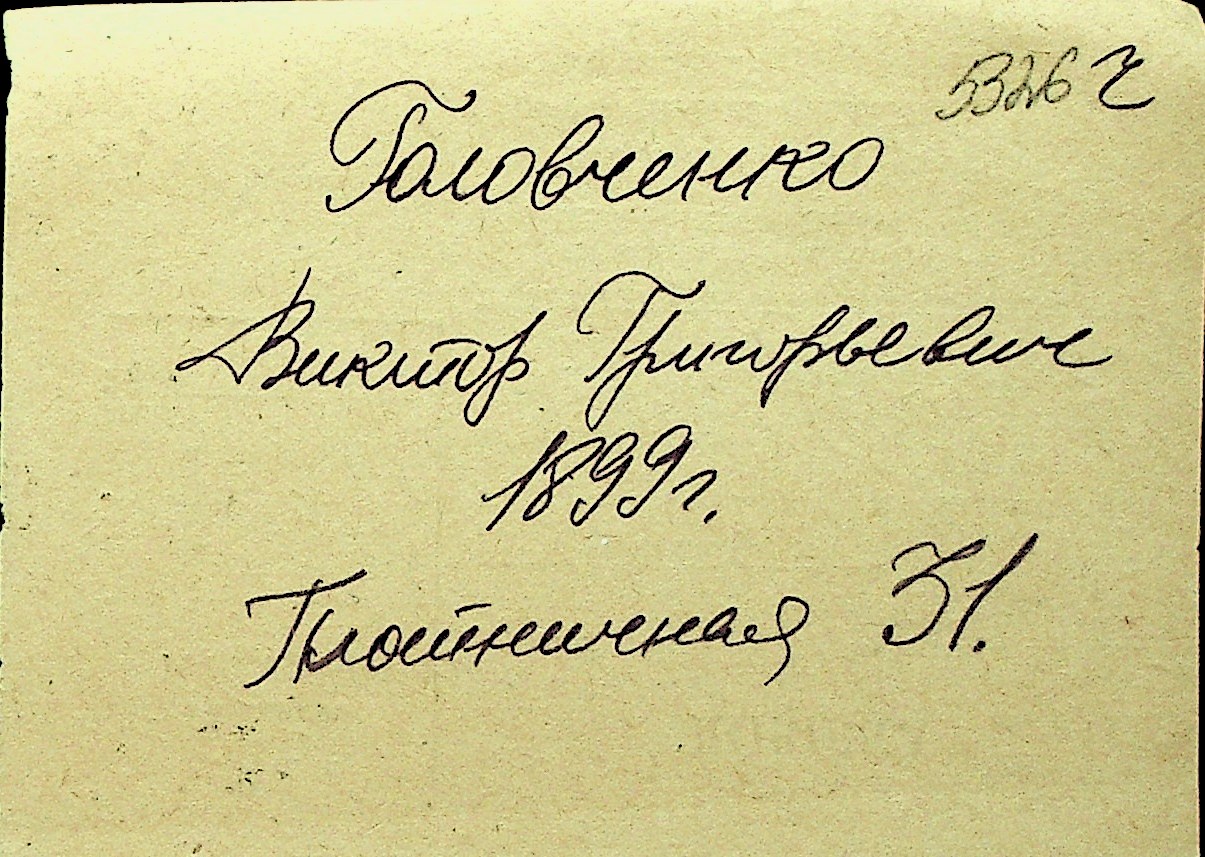 5326 г
Головченко
Виктор Григорьевич
1899г.
Плотничная 31.